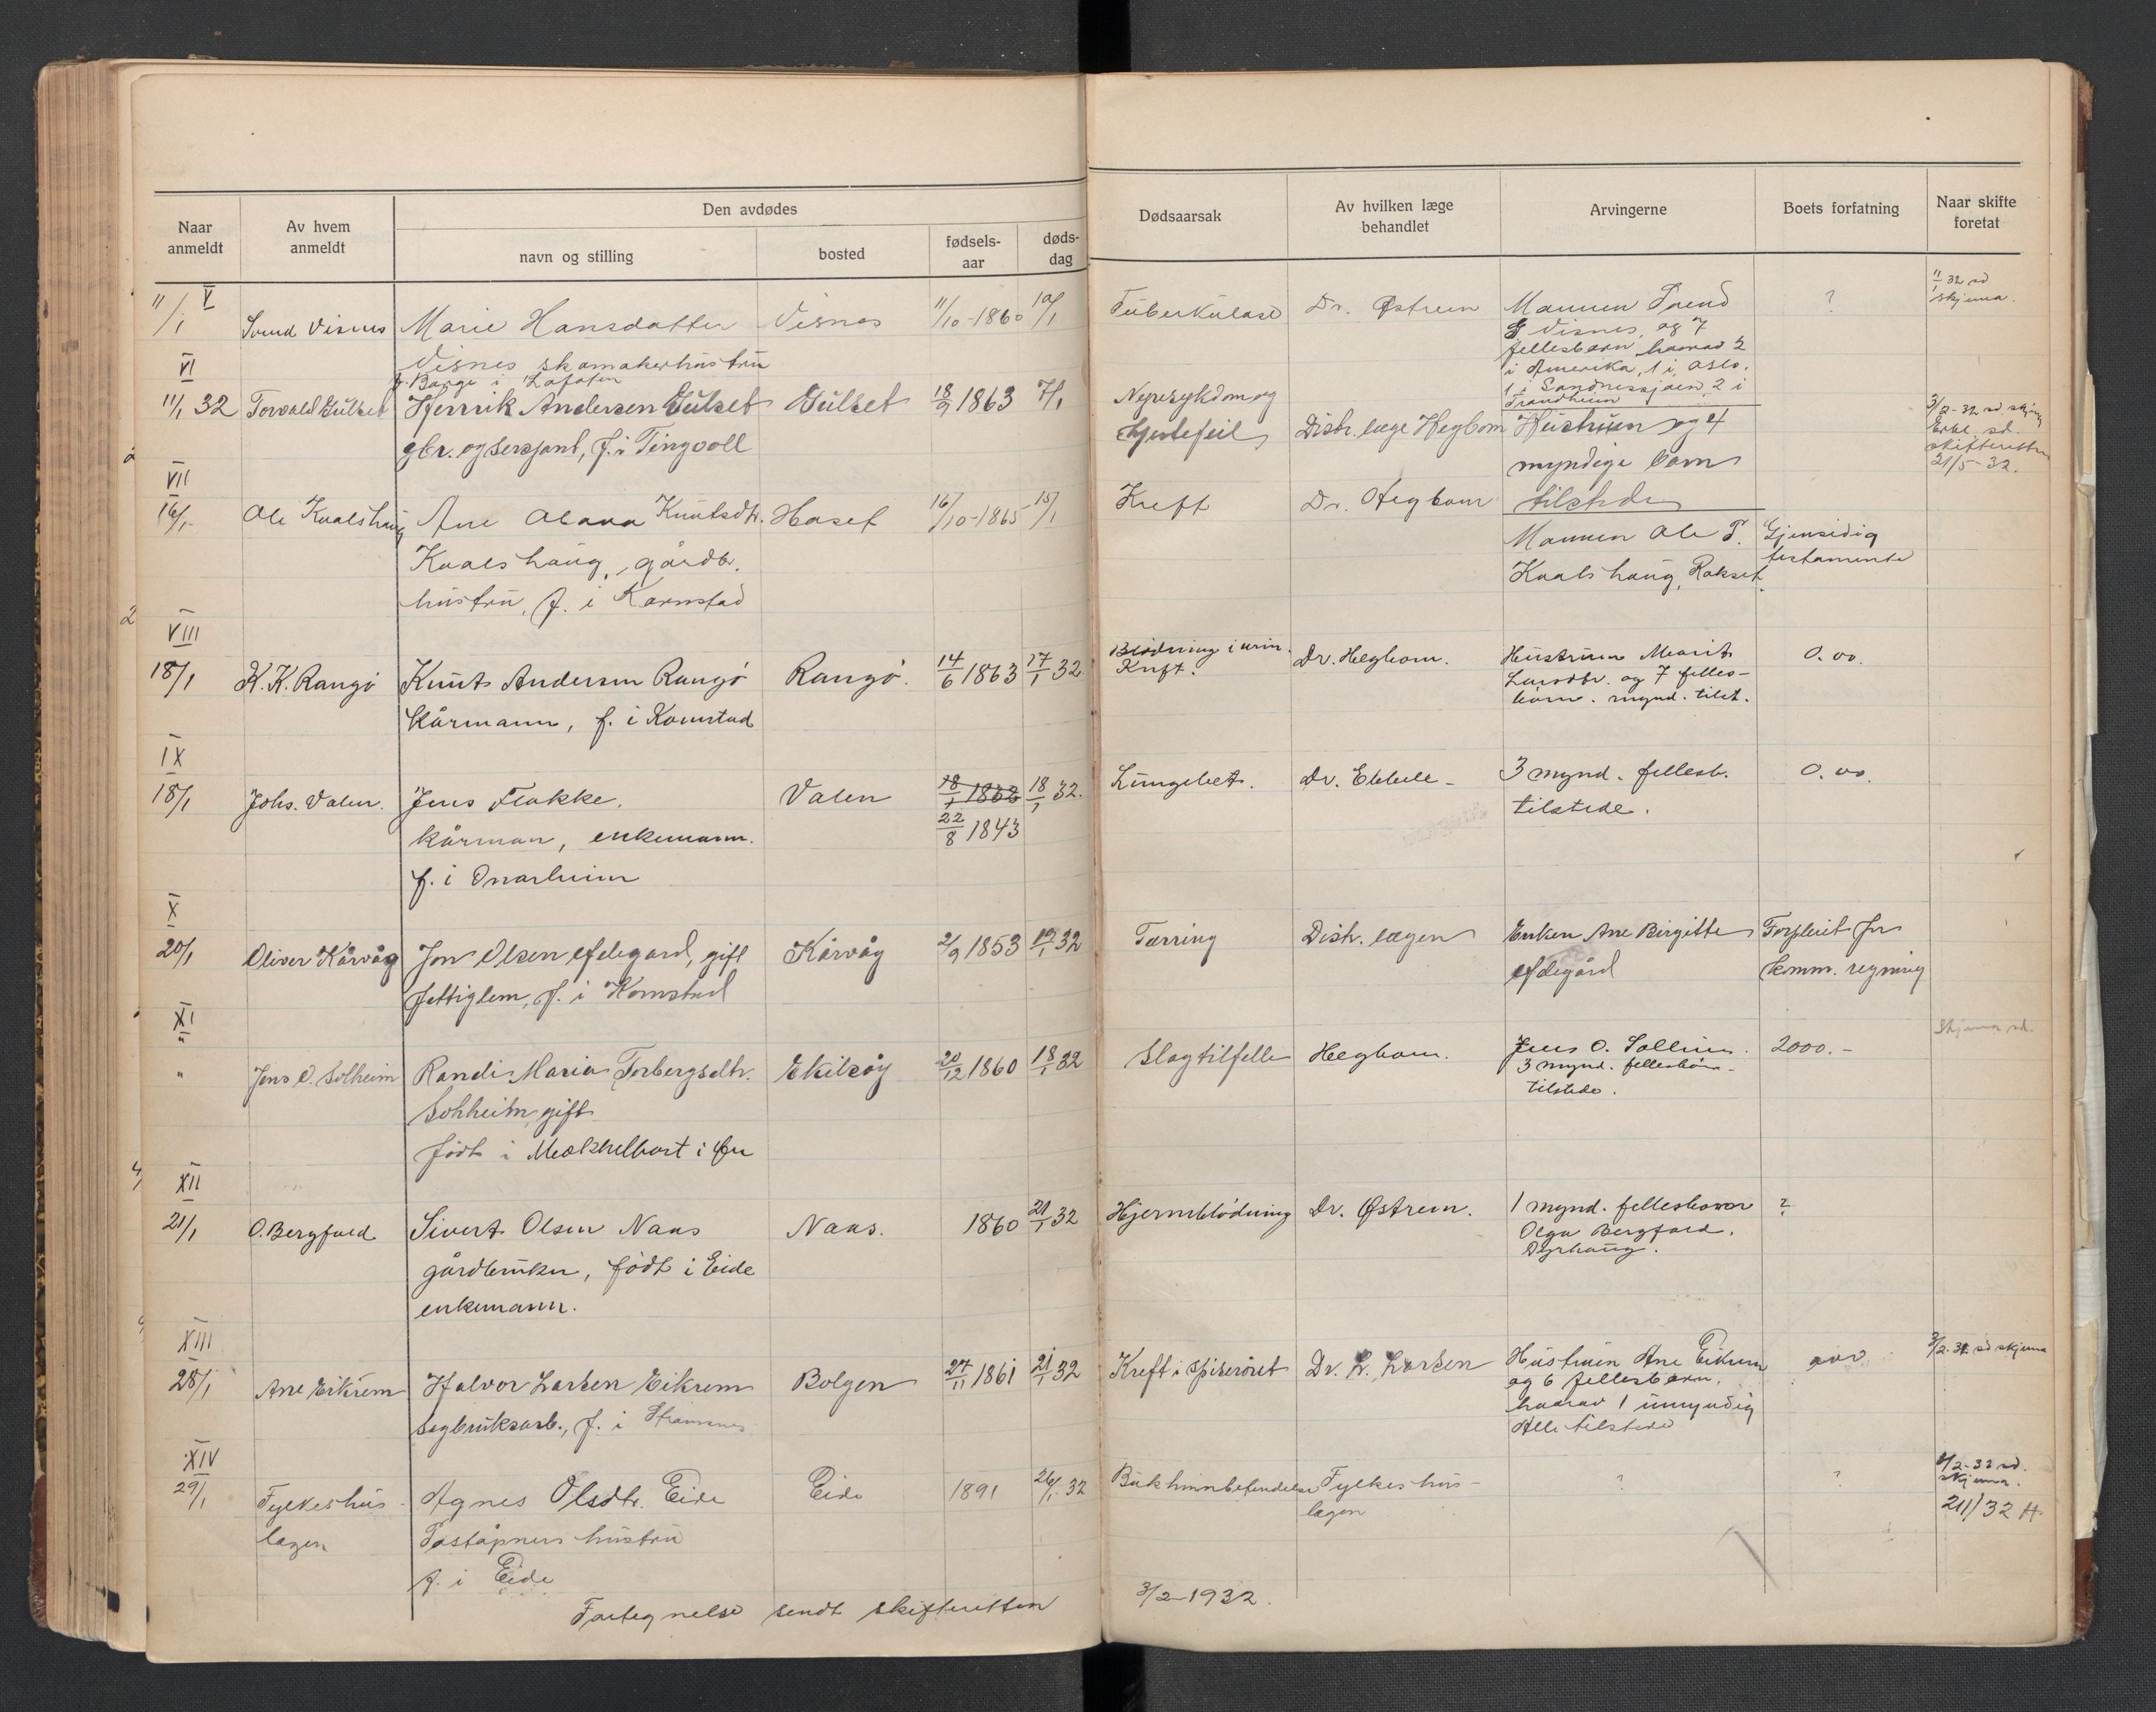 Naar anmeldt
Av hvem anmeldt
Den avdødes
navn og stilling
bosted
fødsels-aar
døds-dag
Dødsaarsak
Av hvilken læge behandlet
Arvingerne
Boets forfatning
Naar skifte foretat
V
11/1 Svend Visnes Marie Hansdatter Visnes 11/10-1860 10/1 Tuberkulose Dr. Østrem Mannen Svend ? 11/1 32 sd
Visnes skomakerhustru
skjema.
Visnes, og 7
f. Borge i Lofoten
fellesbarn, hvorav 2
i Amerika, 1 i Oslo.
1 i Sandnessjøen 2 i
Trondheim
VI
11/1 32 Torvald Gulset Henrik Andersen Gulset Gulset 18/9 1863 7/1 Nyresykdom og
3/2-32 sd. skj
gbr. og sersjant, f. i Tingvoll
Hjertefeil Distr. læge Hegbom Hustruen og 4
sd.
skifteretten
myndige barn
21/5-32.
tilstede
VII
16/1 Ole Kvalshaug Ane Olava Knutsdtr. Haset 16/10-1865 15/1 Kreft Dr. Hegbom
Kvalshaug, gårdbr.
Mannen Ole P. Gjensidig
hustru, f. i Kornstad
Kvalshaug, Rokset. testamente
VIII
18/1 K. K. Rangø Knut Andersen Rangø Rangø. 14/6 1863 17/1 32 Blødning i urin. Dr. Hegbom. Hustruen Marit 0.00.
Kårmann, f. i Kornstad
Kreft.
Larsdtr. og 7 felles-
børn. mynd. tilst.
IX
18/1 Johs. Valen. Jens Flakke. Valen 18/1 1832 18/1 32. Lungebet. Dr. Ebbell - 3 mynd. fellesb. 0.00.
22/8 1843
kårman, enkemann.
tilstede.
f. i
X
20/1 Oliver Kårvåg Jon Olsen Ødegard, gift Kårvåg 2/9 1853 19/1 32 Tærring Distr. lægen Enken Ane Birgitte Forpleiet for
fattiglem, f. i Kornstad
Ødegård komm. regning
XI
" " Jens O. Solheim Randi Maria Torbergsdtr. Ekilsøy 20/12 1860 18/1 32 Slagtilfelle Hegbom. Jens O. Solheim. 2000.- Skjema sd.
Solheim, gift
3 mynd. fellesbørn -
tilstede.
født i Mekkelbost i Ør
XII
21/1 O. Bergfald Sivert Olsen Naas Naas. 1860 21/1 32 Hjerneblødning Dr. Østrem. 1 mynd. fellesbarn ?
gårdbruker, født i Eide
Olga Bergfald.
enkemann.
Dyrhaug.
XIII
28/1 Ane Eikrem Halvor Larsen Eikrem Bolgen 27/11 1861 21/1 32 Kreft i spiserøret Dr. L. Larsen Hustruen Ane Eikrem 3/2-32 sd skjema
Sagbruksarb., f. i Straumsnes
og 6 fellesbarn,
hvorav 1 umyndig
Alle tilstede
XIV
29/1 Fylkeshus- Agnes Olsdtr. Eide Eide 1891 26/1-32 Bukhinnbetendelse Fylkeshus- ? ? 1/2-32 sd.
lægen Poståpners hustru
lægen
skjema.
f. i Eide
211/32 H.
Fortegnelse sendt skifteretten 3/2-1932.